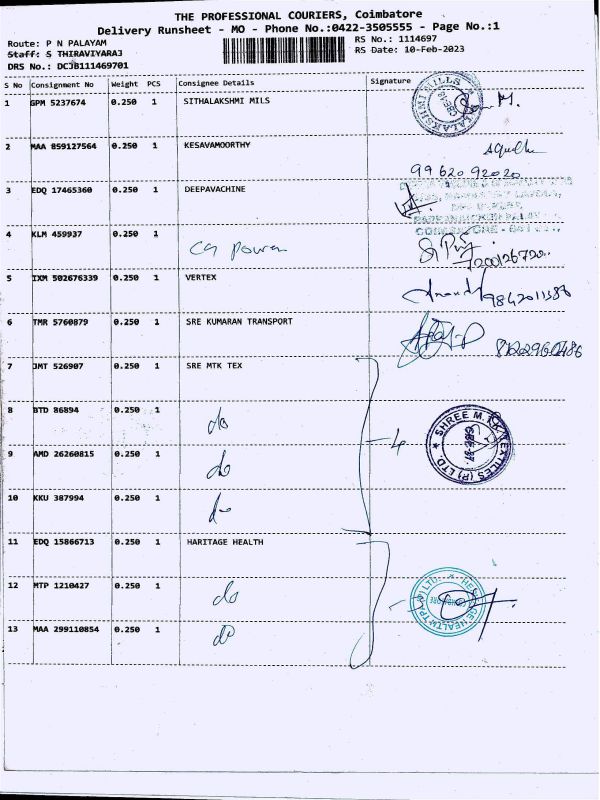 THE PROFESSIONAL COURIERS, Coimbatore
Delivery Runsheet - MO - Phone No.:0422-3505555 - Page No.:1
Route: P N PALAYAM
RS No.: 1114697
Staff: S THIRAVIYARAJ
RS Date: 10-Feb-2023
DRS No.: DCJB111469701
S No Consignment No Weight PCS Consignee Details Signature
1 GPM 5237674 0.250 1 SITHALAKSHMI MILS
2 MAA 859127564 0.250 1 KESAVAMOORTHY
99620 92020
3 EDQ 17465360 0.250 1 DEEPAVACHINE
4 KLM 459937 0.250 1 CG Power
5 IXM 502676339 0.250 1 VERTEX Anand 9842011388
6 TMR 5760879 0.250 1 SRE KUMARAN TRANSPORT
7 JMT 526907 0.250 1 SRE MTK TEX
8 BTD 86894 0.250 1 do
9 AMD 26260815 0.250 1 do
4
SHREE M.T.K. TEXTILES (P) LTD.
10 KKU 387994 0.250 1 do
11 EDQ 15866713 0.250 1 HARITAGE HEALTH
12 MTP 1210427 0.250 1 do
13 MAA 299110854 0.250 1 do